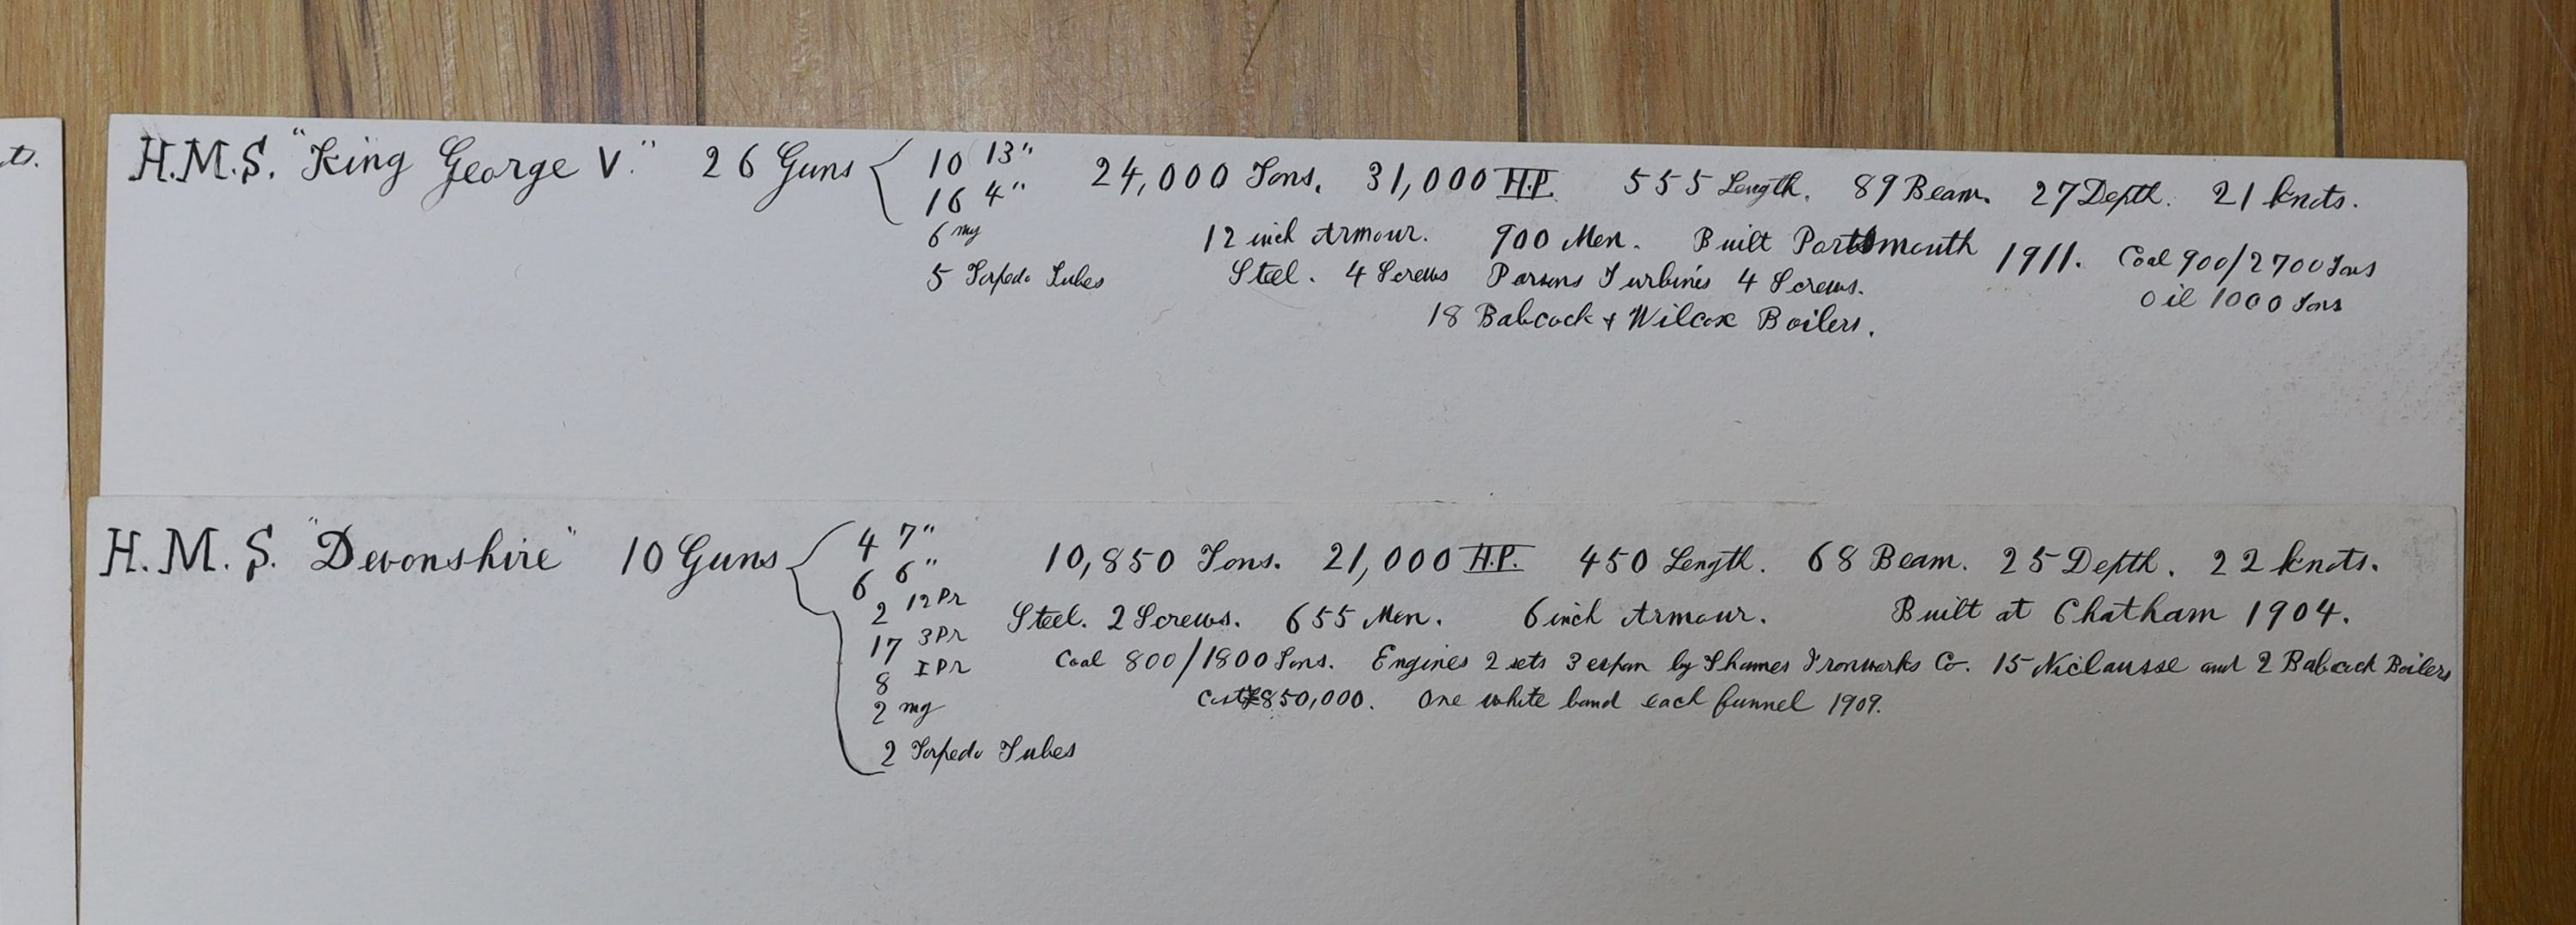 ts.
H.M.S. "King George V." 26 Guns { 10 13" 24,000 Tons. 31,000 H.P. 555 Length. 89 Beam. 27 Depth. 21 knots.
16 4"
6 mg 12 inch Armour. 900 Men. Built Portsmouth 1911. Coal 900/2700 Tons
5 Torpedo Tubes Steel. 4 Screws Parsons Turbines 4 Screws. Oil 1000 Tons
18 Babcock + Wilcox Boilers.
H.M.S. "Devonshire" 10 Guns { 4 7" 10,850 Tons. 21,000 H.P. 450 Length. 68 Beam. 25 Depth. 22 knots.
6 6"
2 12 Pr Steel. 2 Screws. 655 Men. 6 inch Armour. Built at Chatham 1904.
17 3 Pr
8 I Pr Coal 800/1800 Tons. Engines 2 sets 3 expan by Thames Ironworks Co. 15 Niclausse and 2 Babcock Boilers
2 mg Cost £850,000. One white band each funnel 1909.
2 Torpedo Tubes